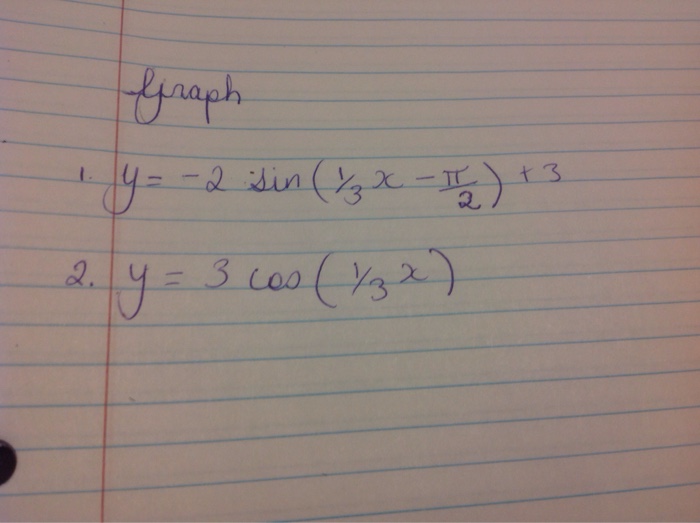 Graph
1. y = -2 sin(1/3 x - π/2) + 3
2. y = 3 cos(1/3 x)